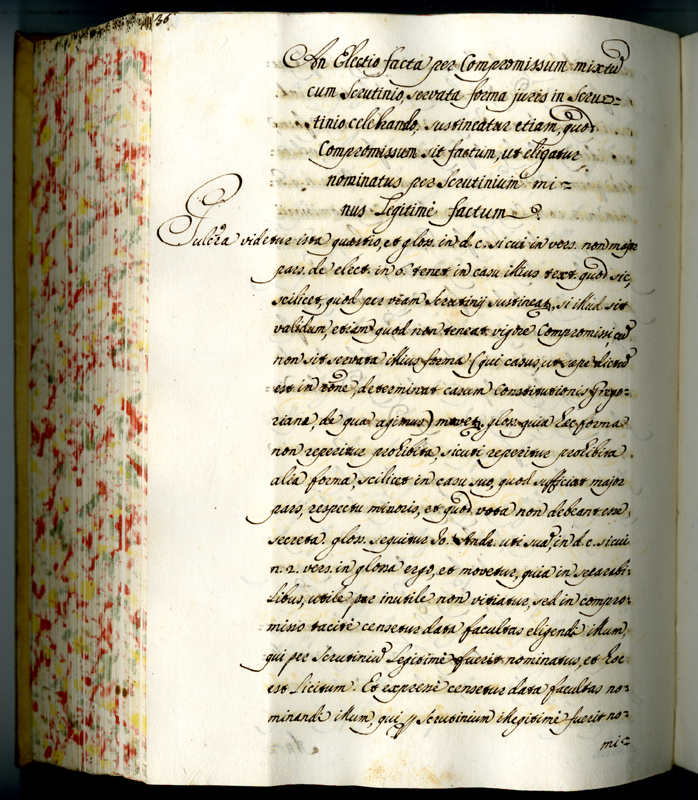 36
An Electio facta per Compromissum mixtũ
cum Scrutinio, servata forma juris in Scru-
tinio celebrando, sustineatur etiam, quod
Compromissum sit factum, ut eligatur
nominatus per Scrutinium mi-
nus Legitimè factum.
Pulcra videtur ista quæstio, et glos. in d. c. si cui in vers. non major
pars. de elect. in 6. tenet in casu illius text. quod sic,
scilicet, quod per viam Scrutinij sustineatr., si illud sit
validum, etiam quod non teneat vigore Compromissi, cũ
non sit servata illius forma (qui casus, ut sepe dictũ
est in rõne, determinat casum Constitutionis Grego-
rianæ, de qua agimus) movetr. glos. quia hæc forma
non reperitur prohibita, sicuti reperitur prohibita
alia forma, scilicet in casu suo, quod sufficiat major
pars, respectu minoris, et quod vota non debeant esse
secreta. glos. sequitur Jo. Andr. uti suã, in d. c. si cui
n. 2. vers. in glosa ergo, et movetur, quia in separabi-
libus, utile per inutile non vitiatur, sed in compro-
misso tacitè censetur data facultas eligendi illum,
qui per Scrutiniũ Legitimè fuerit nominatus, et hoc
est Licitum. Et expressè censetur data facultas no-
minandi illum, qui p Scrutinium illegitimè fuerit no-
mi-